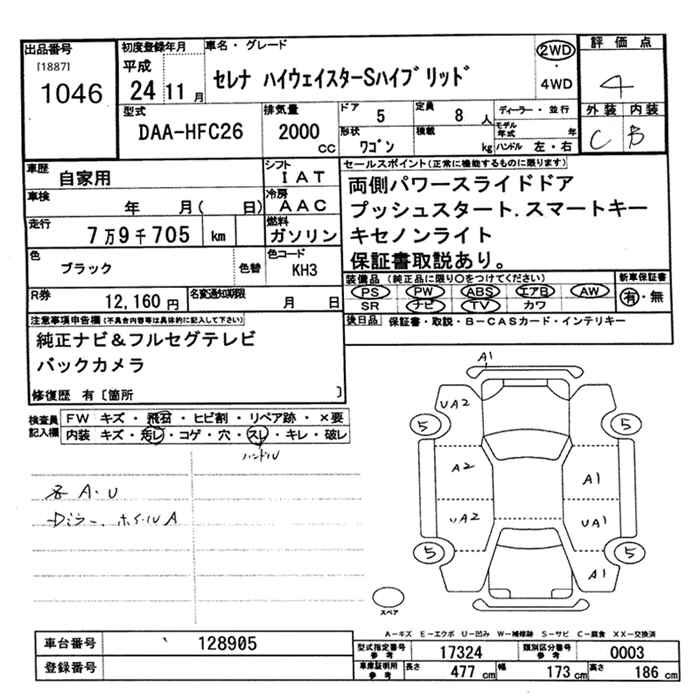 出品番号
[1887]
1046
初度登録年月
平成
24 11 月
車名・グレード
セレナ ハイウェイスターSハイブリッド
2WD
・
4WD
評価点
4
外装 内装
C B
型式
DAA-HFC26
排気量
2000 cc
ドア 5
定員 8 人
形状 ワゴン
積載 kg
ディーラー・並行
モデル年式 年
ハンドル 左・右
車歴
自家用
シフト
IAT
車検
年 月( 日)
冷房
AAC
走行
7万9千705 km
燃料
ガソリン
色
ブラック
色替
色コード
KH3
R券
12,160 円
名変通知期限
月 日
セールスポイント(正常に機能するものに限ります)
両側パワースライドドア
プッシュスタート.スマートキー
キセノンライト
保証書取説あり。
装備品 (純正品に限り○をつけてください)
PS PW ABS エアB AW
SR ナビ TV カワ
新車保証書
有・無
後日品 保証書・取説・B-CASカード・インテリキー
注意事項申告欄(不具合内容等は具体的に記入して下さい)
純正ナビ&フルセグテレビ
バックカメラ
修復歴 有〔箇所 〕
検査員
記入欄
FW キズ・飛石・ヒビ割・リペア跡・×要
内装 キズ・汚レ・コゲ・穴・スレ・キレ・破レ
ハンドル
各A.U
ホイルA
A1
UA2
5
5
A2
A1
UA2
UA1
5
5
A1
スペア
A-キズ E-エクボ U-凹み W-補修跡 S-サビ C-腐食 XX-交換済
車台番号
128905
登録番号
型式指定番号 参考
17324
類別区分番号 参考
0003
車庫証明用 参考
長さ 477 cm
幅 173 cm
高さ 186 cm